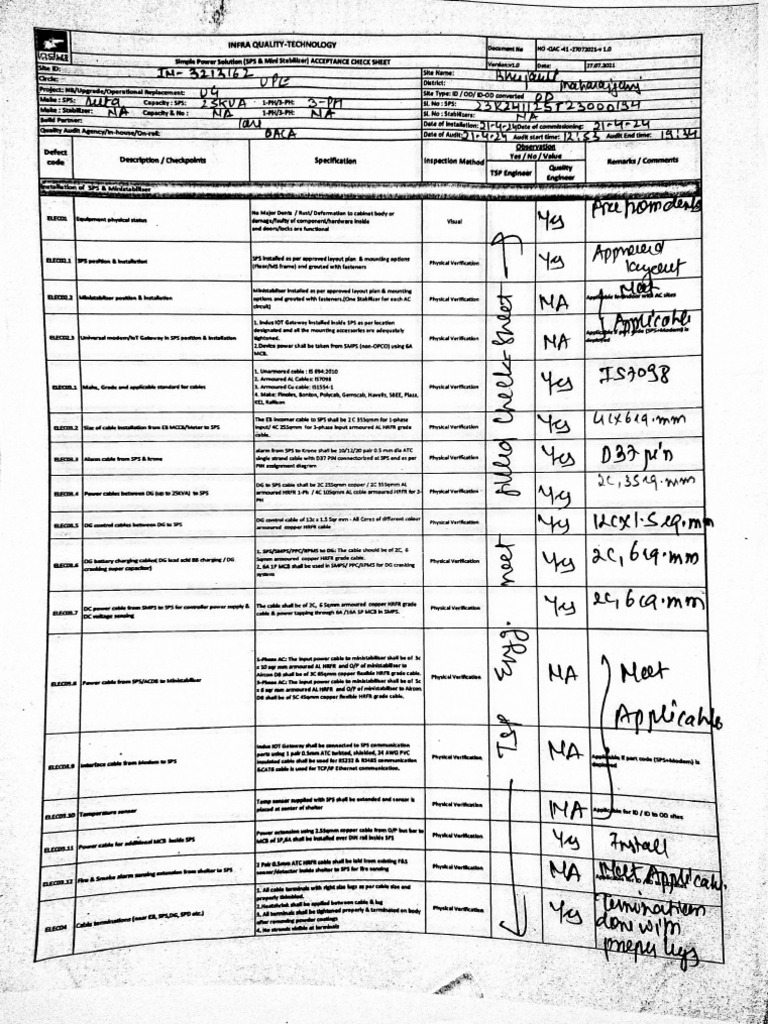 INFRA QUALITY-TECHNOLOGY
Document No HO -QAC -41 -27072021-v 1.0
Simple Power Solution (SPS & Mini Stabilizer) ACCEPTANCE CHECK SHEET
Version:v1.0 Date: 27.07.2021
Site ID: IN-3213162 Site Name:
Circle: UPE District:
Project: NB/Upgrade/Operational Replacement: UG Site Type: ID / OD/ ID-OD converted OD
Make : SPS: Capacity : SPS: 25KVA 1-PH/3-PH: 3-PH Sl. No : SPS:
Make : Stabilizer: NA Capacity & No : NA 1-PH/3-PH: NA Sl. No : Stabilizers: NA
Build Partner: Date of Installation: 21-4-24 Date of commissioning: 21-4-24
Quality Audit Agency/In-house/On-roll: Date of Audit: 21-4-24 Audit start time: 12:53 Audit End time: 19:34
Defect code Description / Checkpoints Specification Inspection Method Observation Yes / No / Value Remarks / Comments
TSP Engineer Quality Engineer
Installation of SPS & Ministabiliser
TSP Engg. meet filled Check-Sheet
ELEC01 Equipment physical status
No Major Dents / Rust/ Deformation to cabinet body or
damage/faulty of component/hardware inside
and doors/locks are functional
Visual Yes
ELEC02.1 SPS position & Installation
SPS installed as per approved layout plan & mounting options
(Floor/MS frame) and grouted with fasteners
Physical Verification Yes Approved layout
ELEC02.2 Ministabiliser position & Installation
Ministabiliser installed as per approved layout plan & mounting
options and grouted with fasteners.(One Stabilizer for each AC
circuit)
Physical Verification NA Meet
ELEC02.3 Universal modem/IoT Gateway in SPS position & Installation
1. Indus IOT Gateway Installed inside SPS as per location
designated and all the mounting accessories are adequately
tightened.
2.Device power shall be taken from SMPS (non-OPCO) using 6A
MCB.
Physical Verification NA Applicable
ELEC03.1 Make, Grade and applicable standard for cables
1. Unarmored cable : IS 694:2010
2. Armored AL Cables: IS7098
3. Armoured Cu cable: IS1554-1
4. Make: Finolex, Bonton, Polycab, Gemscab, Havells, SBEE, Plaza,
KEI, Kalflam
Physical Verification Yes IS7098
ELEC03.2 Size of cable installation from EB MCCB/Meter to SPS
The EB incomer cable to SPS shall be 2 C 35Sqmm for 1-phase
input/ 4C 25Sqmm for 3-phase input armoured AL HRFR grade
cable.
Physical Verification Yes
ELEC03.3 Alarm cable from SPS & krone
alarm from SPS to Krone shall be 10/12/20 pair 0.5 mm dia ATC
single strand cable with D37 PIN connectorized at SPS end as per
PIN assignment diagram
Physical Verification Yes D37 pin
ELEC03.4 Power cables between DG (up to 25kVA) to SPS
Physical Verification Yes 2C, 35sq.mm
ELEC03.5 DG control cables between DG to SPS
DG control cable of 12c x 1.5 Sqr mm - All Cores of different colour
armoured copper HRFR cable
Physical Verification Yes 12CX1.5sq.mm
ELEC03.6 DG battery charging cables( DG lead acid BB charging / DG
cranking super capacitor)
1. SPS/SMPS/PPC/RPMS to DG: The cable should be of 2C, 6
Sqmm armoured copper HRFR grade cable.
2. 6A 1P MCB shall be used in SMPS/ PPC/RPMS for DG cranking
system
Physical Verification Yes 2C, 6sq.mm
ELEC03.7 DC power cable from SMPS to SPS for controller power supply &
DC voltage sensing
The cable shall be of 2C, 6 Sqmm armoured copper HRFR grade
cable & power tapping through 6A /16A 1P MCB in SMPS.
Physical Verification Yes 2C, 6sq.mm
ELEC03.8 Power cable from SPS/ACDB to Ministabiliser
Physical Verification NA Meet Applicable
ELEC03.9 Interface cable from Modem to SPS
Indus IOT Gateway shall be connected to SPS communication
ports using 1 pair 0.5mm ATC twisted, shielded, 24 AWG PVC
insulated cable shall be used for RS232 & RS485 communication
&CAT6 cable is used for TCP/IP Ethernet communication.
Physical Verification NA Applicable if part code (SPS+Modem) is
deployed
ELEC03.10 Temperature sensor
Temp sensor supplied with SPS shall be extended and sensor is
placed at center of shelter
Physical Verification NA Applicable for ID / ID to OD sites
ELEC03.11 Power cable for additional MCB inside SPS
Power extension using 2.5Sqmm copper cable from O/P bus bar to
MCB of 1P,6A shall be installed over DIN rail inside SPS
Physical Verification Yes Install
ELEC03.12 Fire & Smoke alarm sensing extension from shelter to SPS
2 Pair 0.5mm ATC HRFR cable shall be laid from existing F&S
sensor/detector inside shelter to SPS for fire sensing
Physical Verification NA Meet Applicable
ELEC04 Cable terminations (near EB, SPS,DG, SPD etc.)
1. All cable terminals with right size lugs as per cable size and
properly thimbled.
2.Heatshrink shall be applied between cable & lug
3. All terminals shall be tightened properly & terminated on body
after removing powder coatings
4. No strands visible at terminals
Physical Verification Yes Termination
done with
proper lugs